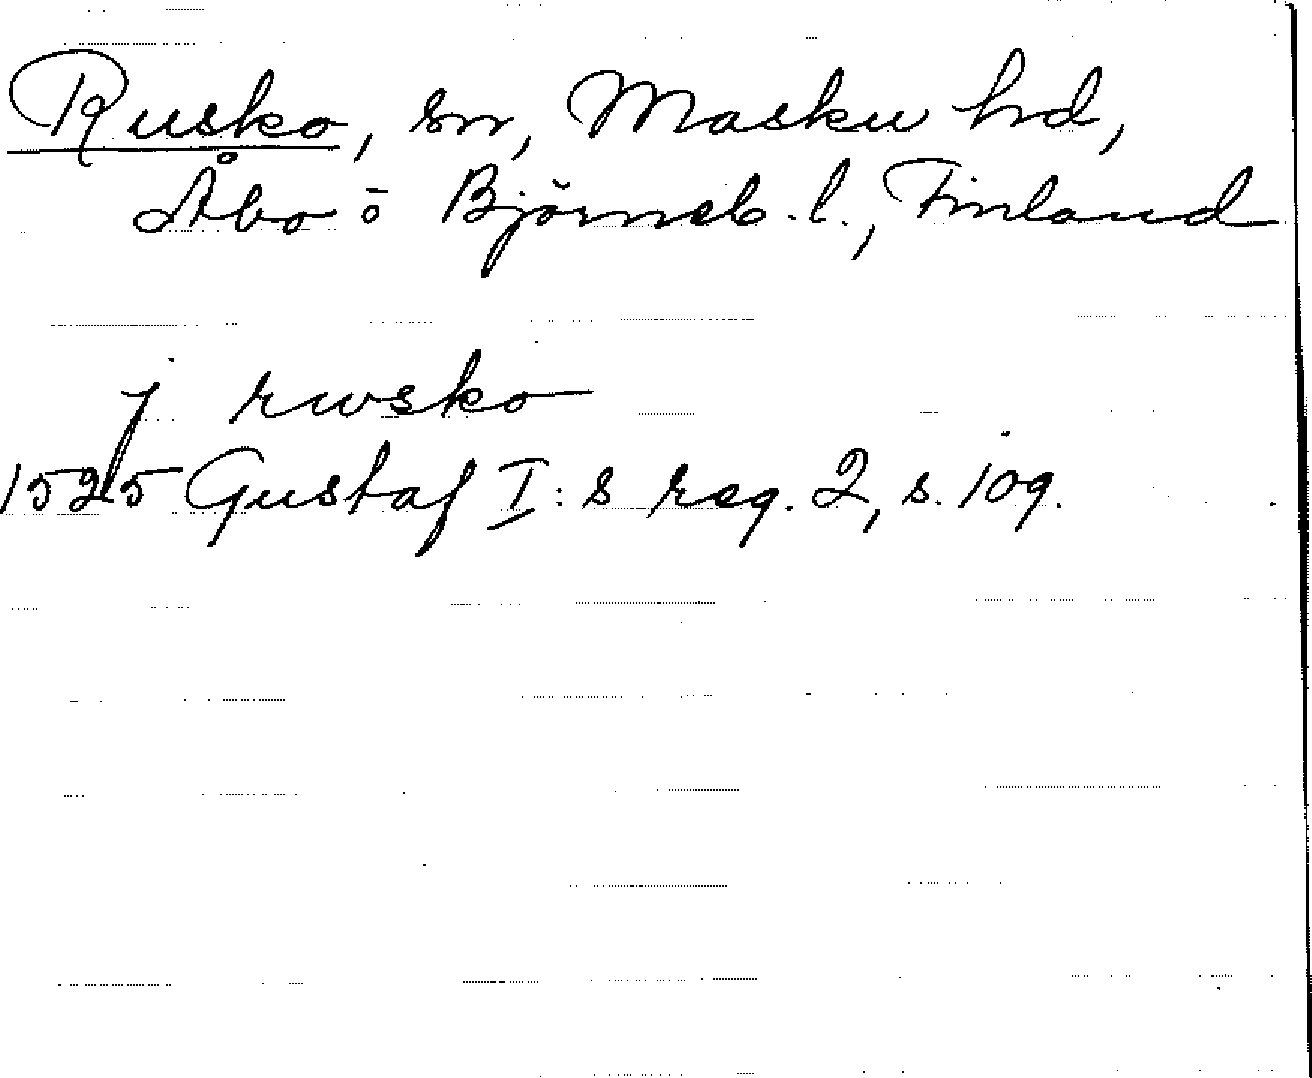 Rusko, sn, Masku hd,
Åbo ö Björneb. l., Finland
j rwsko
1525 Gustaf I:s reg. 2, s. 109.